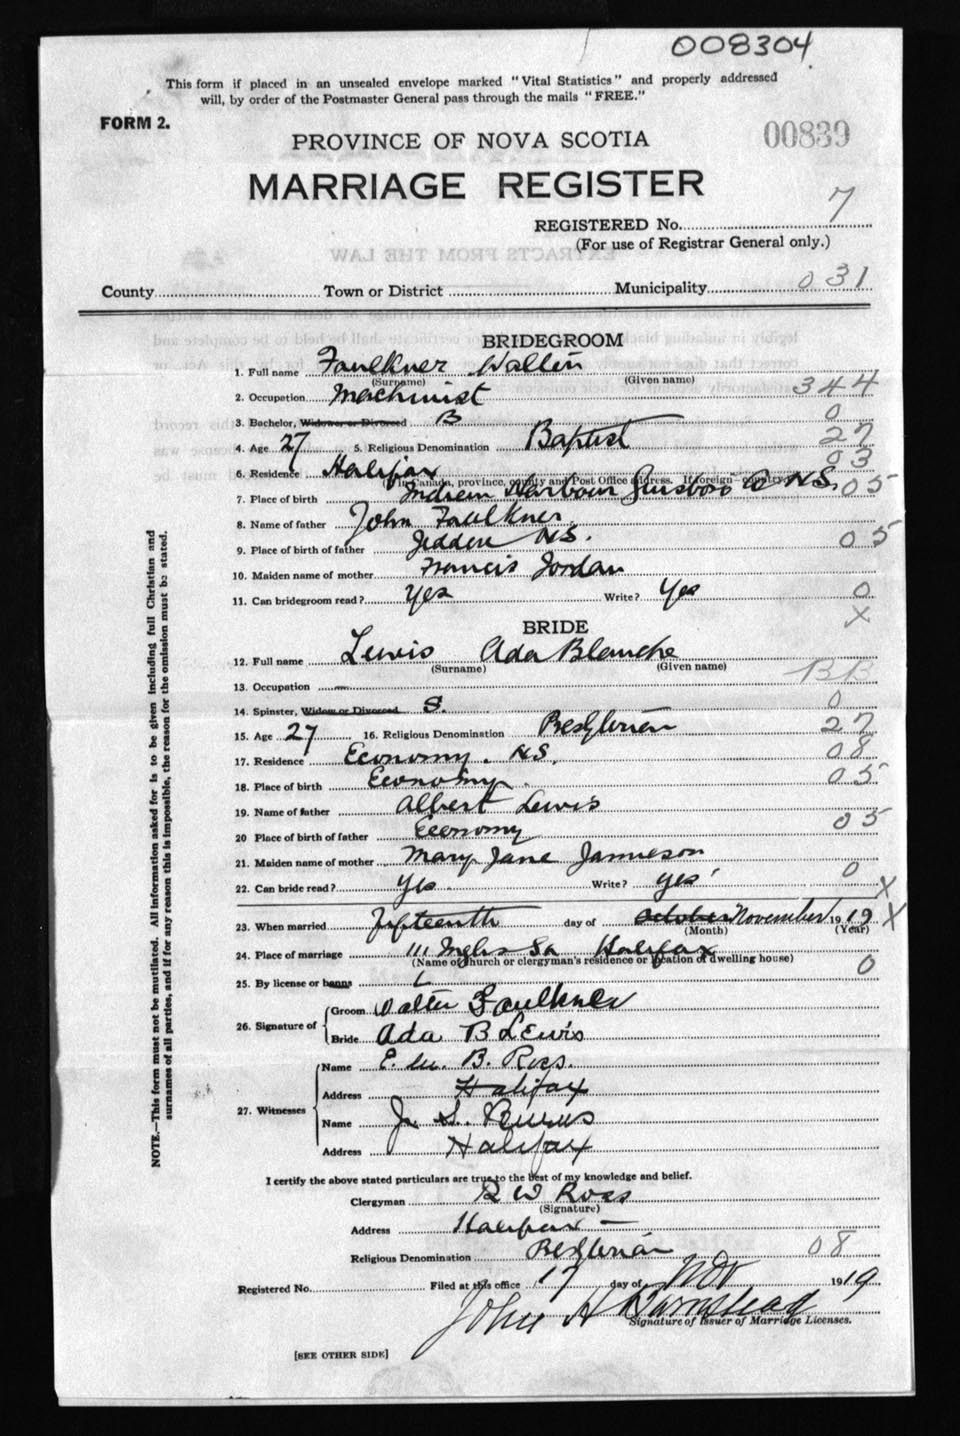 008304
This form if placed in an unsealed envelope marked "Vital Statistics" and properly addressed
will, by order of the Postmaster General pass through the mails "FREE."
FORM 2.
PROVINCE OF NOVA SCOTIA
00839
MARRIAGE REGISTER
REGISTERED No. 7
(For use of Registrar General only.)
County Town or District Municipality 031
BRIDEGROOM
1. Full name Faulkner Walter
(Surname) (Given name)
2. Occupation Machinist 344
3. Bachelor, Widower or Divorced B 0
4. Age 27 5. Religious Denomination Baptist 27
6. Residence Halifax 03
(If in Canada, province, county and Post Office address. If foreign country
7. Place of birth Harbour N.S. 05
8. Name of father John Faulkner
9. Place of birth of father N.S. 05
10. Maiden name of mother Francis Jordan
11. Can bridegroom read? Yes Write? Yes 0
X
BRIDE
12. Full name Lewis Ada Blanche
(Surname) (Given name)
13. Occupation — BB
14. Spinster, Widow or Divorced S. 0
15. Age 27 16. Religious Denomination Presbyterian 27
17. Residence Economy. N.S. 08
18. Place of birth Economy. 05
19. Name of father Albert Lewis
20 Place of birth of father Economy 05
21. Maiden name of mother Mary Jane Jamieson
22. Can bride read? Yes. Write? yes 0
X
23. When married Fifteenth day of October November 1919 X
(Month) (Year)
24. Place of marriage 111 Inglis St Halifax
(Name of church or clergyman's residence or location of dwelling house)
25. By license or banns L 0
26. Signature of
Groom Walter Faulkner
Bride Ada B Lewis
27. Witnesses
Name E. M. B. Ross.
Address Halifax
Name J. S.
Address Halifax
I certify the above stated particulars are true to the best of my knowledge and belief.
Clergyman R W Ross
(Signature)
Address Halifax —
Religious Denomination Presbyterian 08
Registered No. Filed at this office 17 day of Nov 1919
John A Barnstead
Signature of Issuer of Marriage Licenses.
[SEE OTHER SIDE]
NOTE.—This form must not be mutilated. All information asked for is to be given including full Christian and
surnames of all parties, and if for any reason this is impossible, the reason for the omission must be stated.